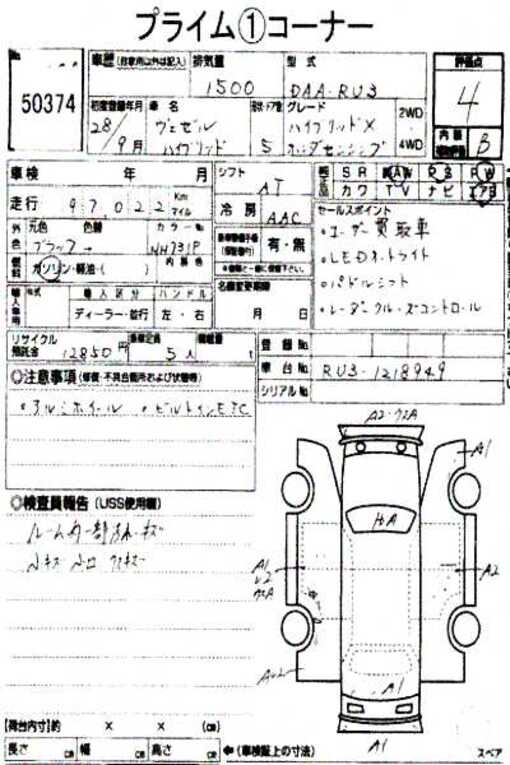 プライム①コーナー
50374
車歴 (自家用以外は記入) 排気量 型式
1500 DAA-RU3
初度登録年月 車名 形状・ドア数 グレード
28/9月 ヴェゼル ハイブリッド 5 ハイブリッドX ホンダセンシング
2WD
4WD
評価点
4
内装
B
車検 年 月
シフト
AT
SR AW PS PW
カワ TV ナビ エアB
走行 97,022 Km マイル
冷房
AAC
セールスポイント
・ユーザー買取車
・LEDオートライト
・パドルシフト
・レーダークルーズコントロール
外色 元色 色替 カラーNo
ブラック→ NH731P
内装色
燃料 ガソリン・軽油・( )
有・無
名義変更期限
月 日
輸入車用 年式 輸入区分 ハンドル
ディーラー・並行 左・右
リサイクル預託金 12850円 乗車定員 5人 積載量 t
登録No.
車台No. RU3-1218949
シリアルNo.
◎注意事項 (修復・不具合箇所および状態等)
・アルミホイール ・ビルトインETC
◎検査員報告 (USS使用欄)
A1
A1
A2
A1
A1
[荷台内寸]約 × × (cm)
長さ cm 幅 cm 高さ cm
←(車検証上の寸法)
スペア